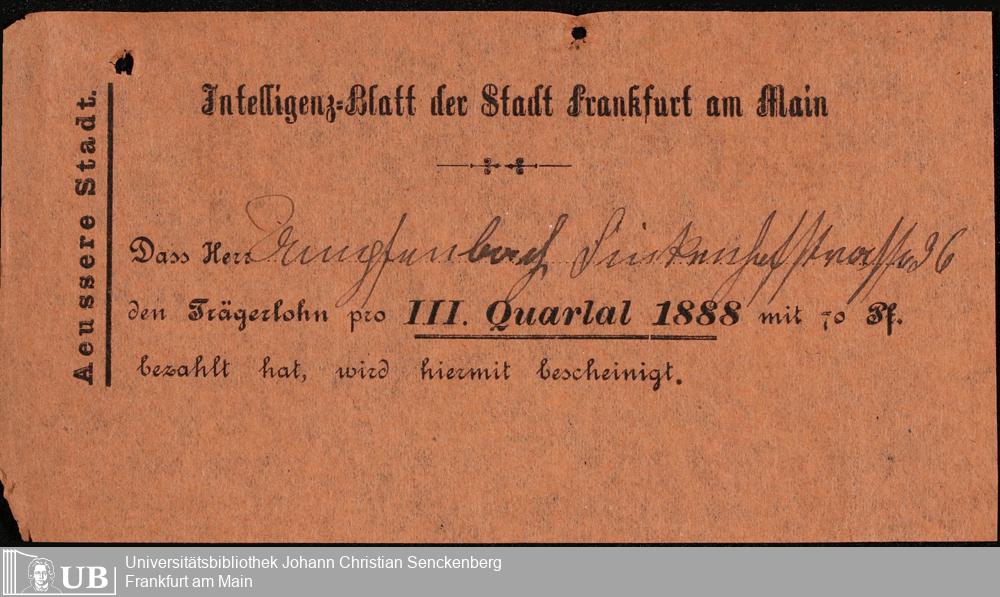 Aeussere Stadt.
Intelligenz=Blatt der Stadt Frankfurt am Main
Dass Herr
den Trägerlohn pro III. Quartal 1888 mit 70 Pf.
bezahlt hat, wird hiermit bescheinigt.
UB
Universitätsbibliothek Johann Christian Senckenberg
Frankfurt am Main